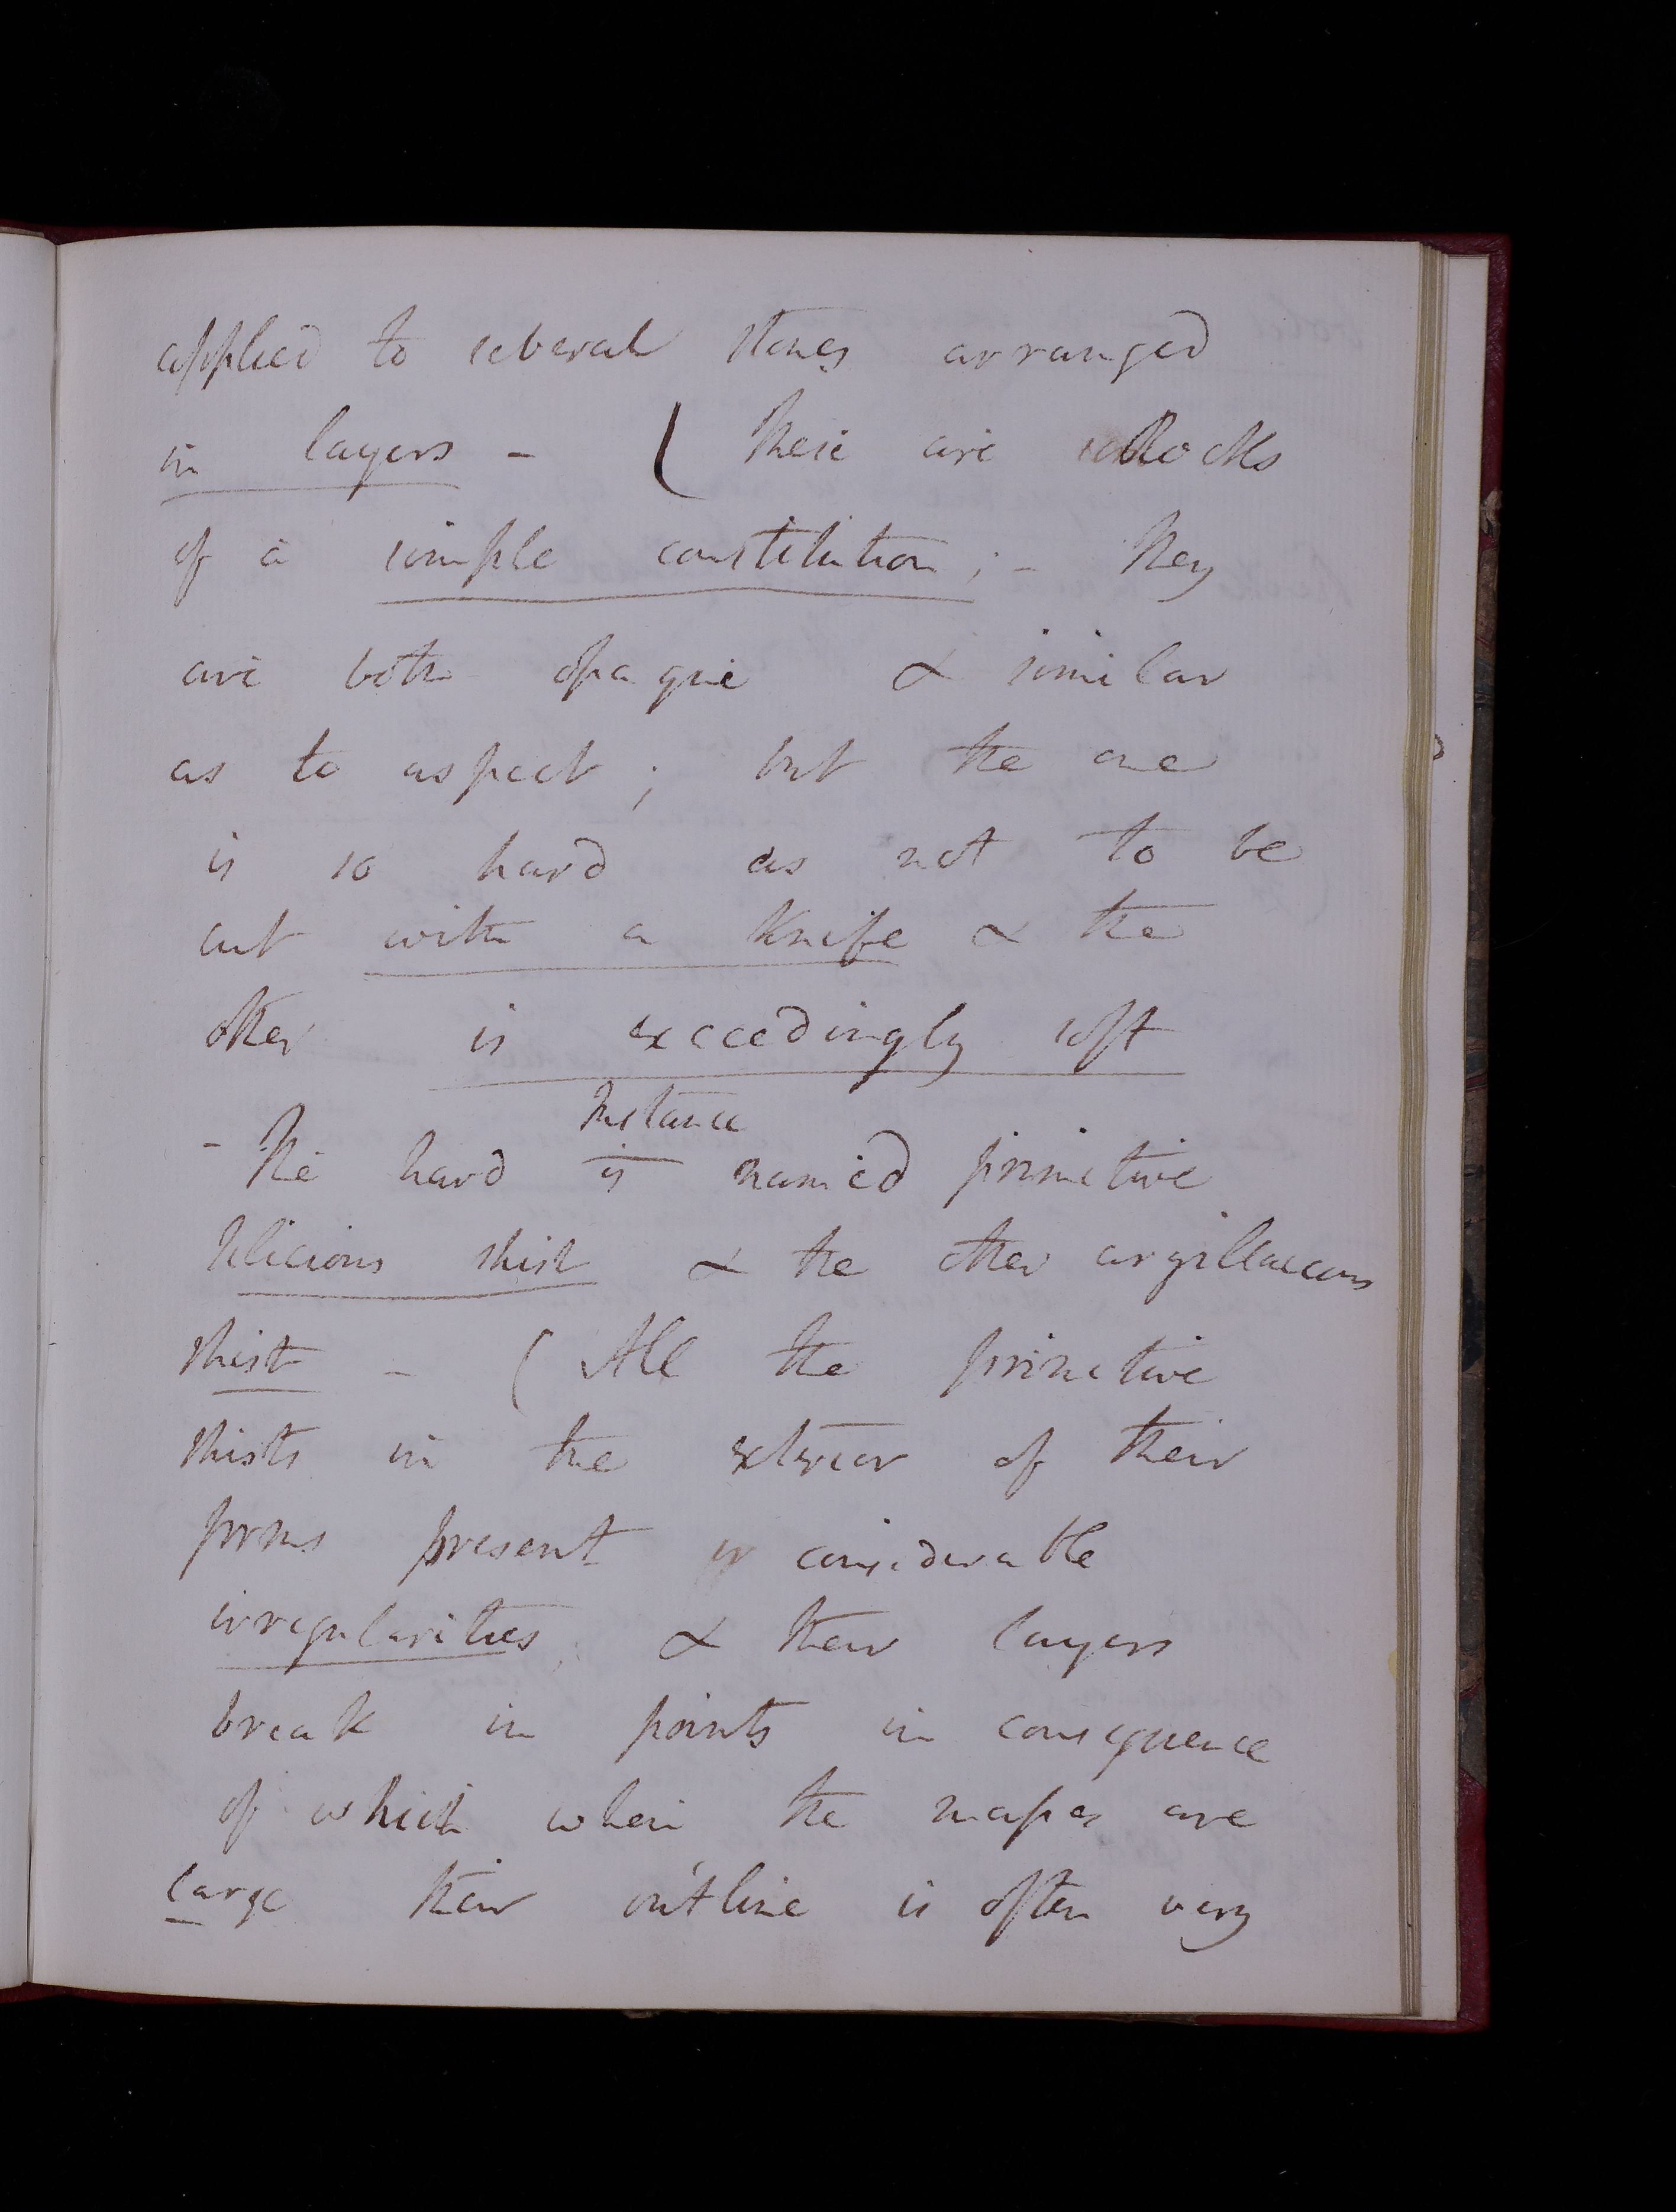 applied to several stones arranged
in layers - ( these are Rocks
of a simple constitution ; - They
are both opaque & similar
as to aspect ; but the one
is so hard as not to be
cut with a knife & the
other is exceedingly soft
Instance
- The hard is named primitive
silicious shist & the other argillaceous
shist - ( All the primitive
shists in the exterior of their
forms present considerable
irregularities, & their layers
break in points in consequence
of which when the masses are
large their outline is often very